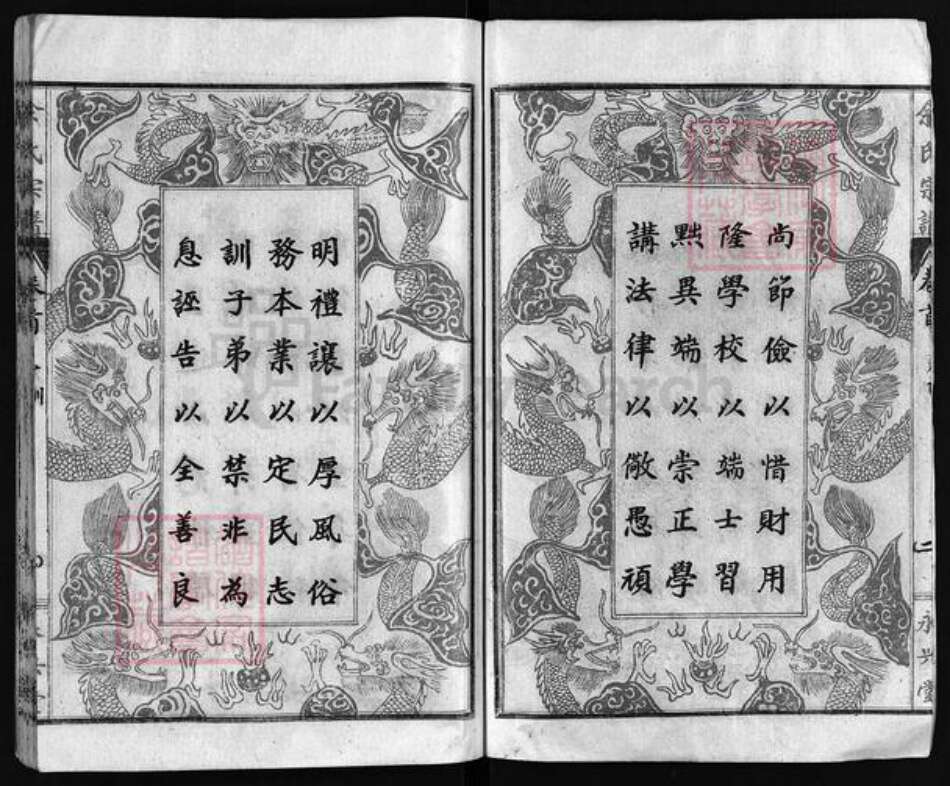 尚節儉以惜財用
隆學校以端士習
黜異端以崇正學
講法律以儆愚頑
明禮讓以厚風俗
務本業以定民志
訓子弟以禁非為
息誣告以全善良
氏宗譜
卷首
二
永兴堂
氏宗譜
卷首